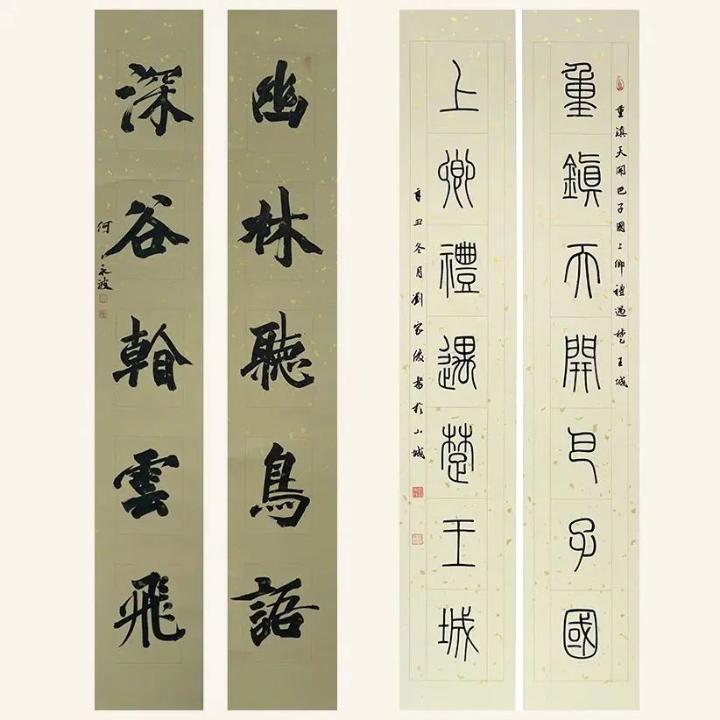 幽林聽鳥語
深谷看雲飛
何永波
重鎮天開巴子國上卿禮遇楚王城
重鎮天開巴子國
上卿禮遇楚王城
辛丑冬月劉家書於山城